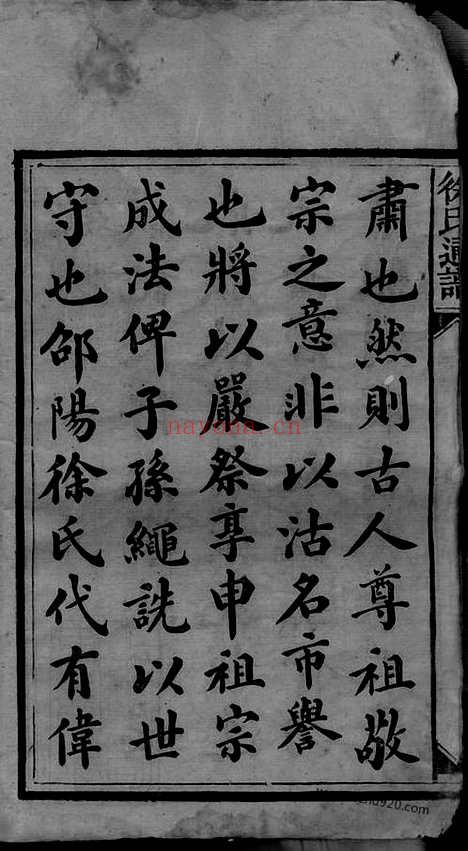 徐氏通譜
肅也然則古人尊祖敬
宗之意非以沽名市譽
也將以嚴祭享申祖宗
成法俾子孫繩詵以世
守也邵陽徐氏代有偉
nayona.cn